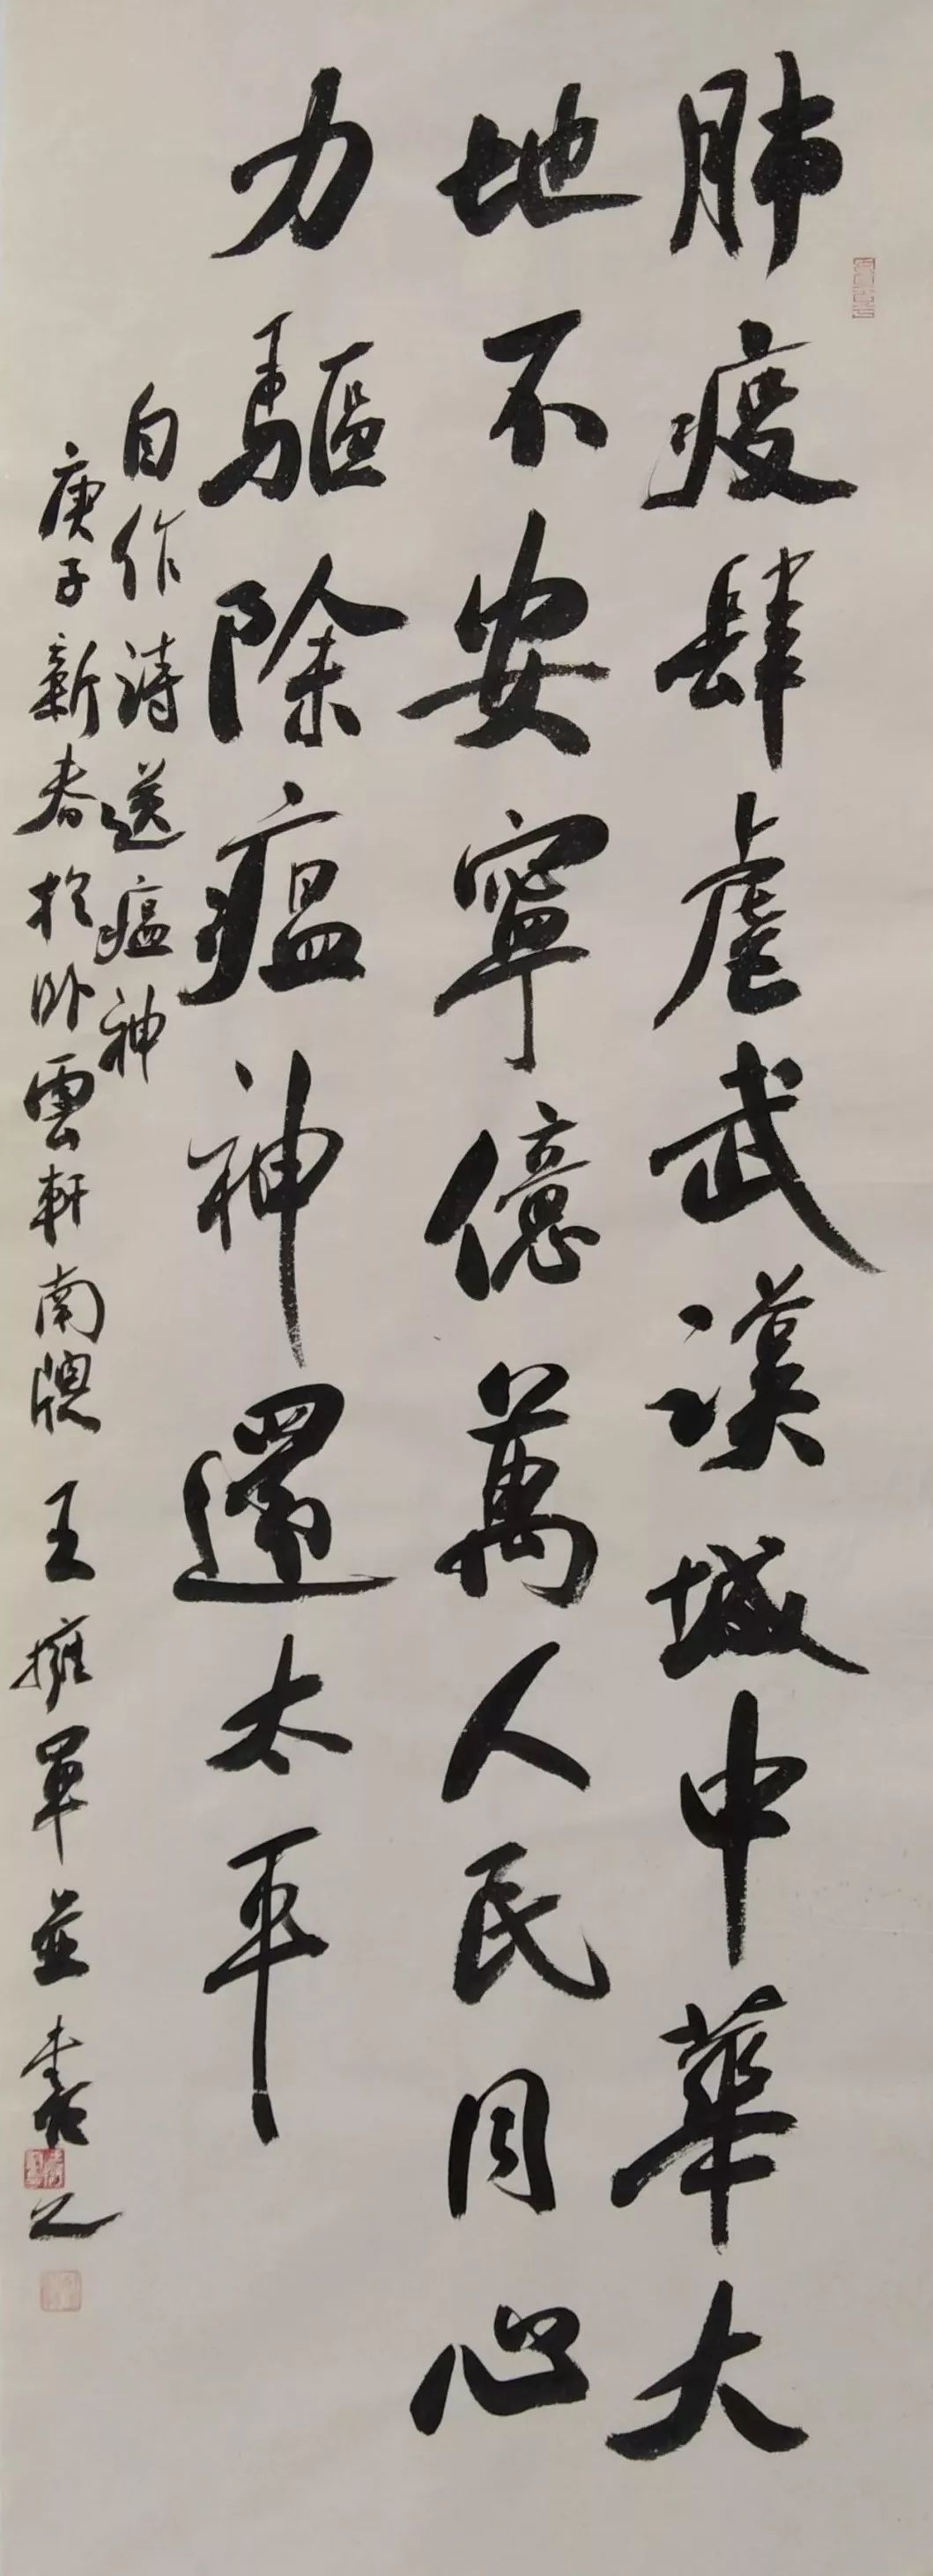 肺疫肆虐武漢城中華大
地不安寧億萬人民同心
力驅除瘟神還太平
自作詩送瘟神
庚子新春於卧雲軒南牕王擁軍並書之